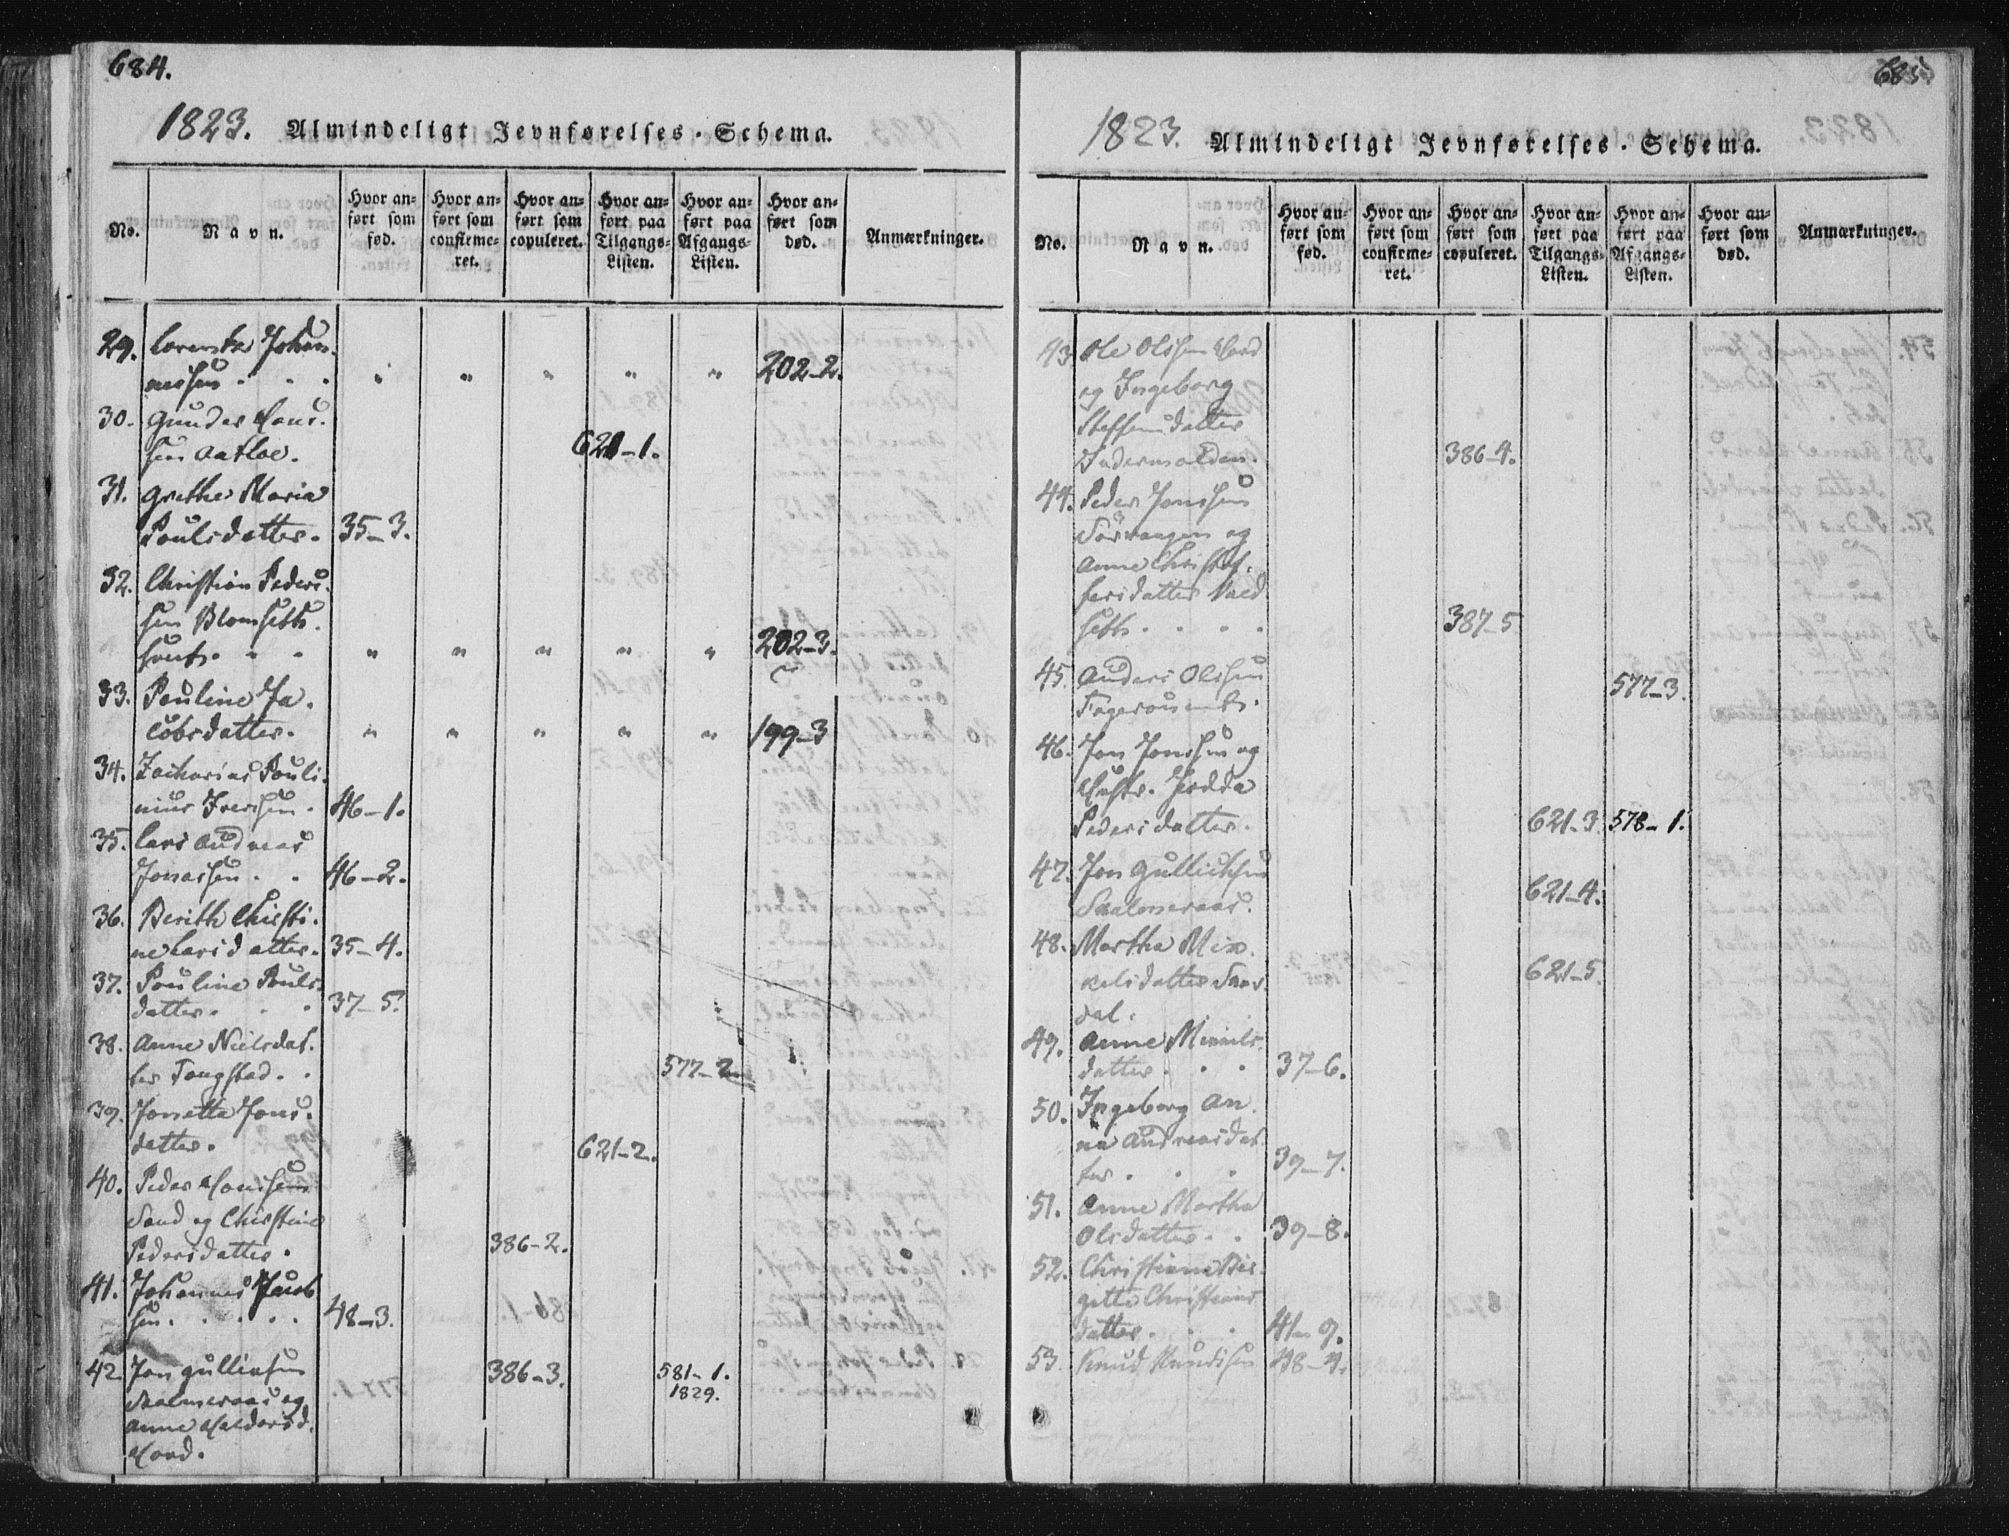 684.
1823. Almindeligt Jevnførelses-Schema.
No.
Navn.
Hvor anført som fød.
Hvor anført som confirmeret.
Hvor anført som copuleret.
Hvor anført paa Tilgangs-Listen.
Hvor anført paa Afgangs-Listen.
Hvor anført som død.
Anmærkninger.
29. Lorentz Johan-
nessen . . . " " " " " 202-2.
30. Gunder Hans-
sen Aatloe. 621-1.
31. Grethe Maria
Poulsdatter. 35-3.
32. Christian Peders-
sen Blomseth-
hvufs. " " " " " " " 202-3.
33. Pauline Ja-
cobsdatter. " " " " " 199-3
34. Zacharias Pouli-
nius Iversen. 46-1.
35. Lars Andreas
Jonassen . . 46-2.
36. Berith Christi-
ne Larsdatter. 35-4.
37. Pouline Pouls-
datter. . . 37-5.
38. Anne Nielsdat-
ter Tangstad. . 577-2
39. Jonetta Jons-
datter. 621-2.
40. Peder Hansen
Sand og Christine
Pedersdatter. 386-2.
41. Johannes Jacob-
sen. . . . . 48-3.
42. Jon Gulliksen 386-3. 581-1.
Saalmeraas og 1829.
Anne Haldorsd.
Hoed.
685.
1823. Almindeligt Jevnførelses-Schema.
No.
Navn.
Hvor anført som fød.
Hvor anført som confirmeret.
Hvor anført som copuleret.
Hvor anført paa Tilgangs-Listen.
Hvor anført paa Afgangs-Listen.
Hvor anført som død.
Anmærkninger.
43. Ole Olsen Hoed
og Ingeborg
Steffensdatter
Indermalden. 386-4.
44. Peder Jonssen
Sørvaagen og
Anne Christof-
fersdatter Vald-
seth. . . . 387-5
45. Anders Olssen 577-3.
46. Jon Jonssen og
Hustr. Gedda
Pedersdatter. 621-3. 578-1.
47. Jon Gullicksen
Saalmeraas. 621-4.
48. Martha Mix-
kelsdatter 621-5.
dal.
49. Anne
datter . . . 37-6.
50. Ingeborg An-
na Andreasdat-
ter . . . 39-7.
51. Anne Martha
Olsdatter. . 39-8.
52. Christiana Bir-
gitta Christens-
datter. . . 41-9.
53. Knud Knudssen 48-4.